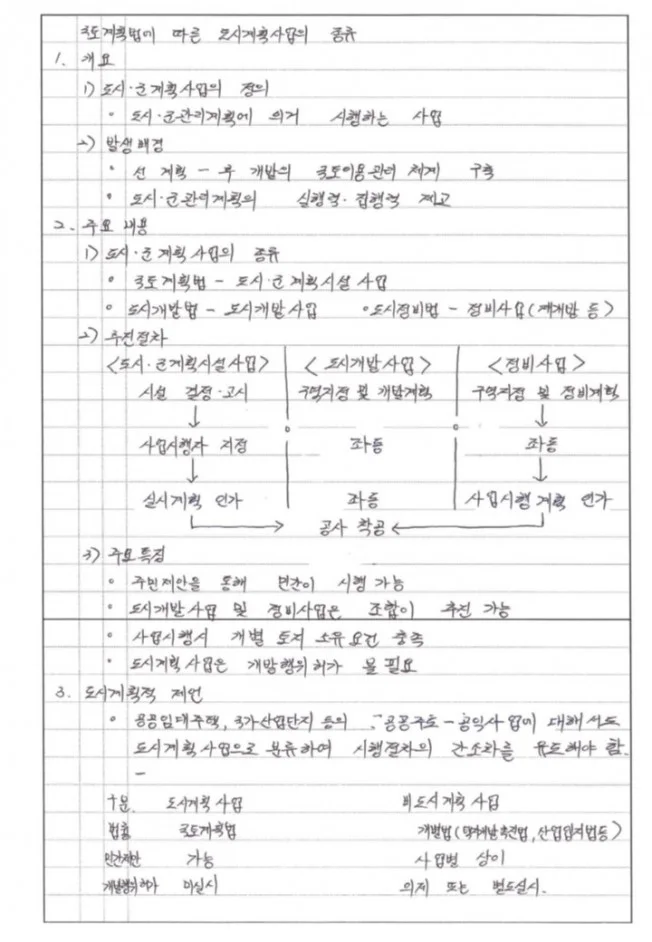 국토계획법에 따른 도시계획사업의 종류
1. 개요
1) 도시·군계획사업의 정의
• 도시·군관리계획에 의거 시행하는 사업
2) 발생배경
• 선 계획 - 후 개발의 국토이용관리 체계 구축
• 도시·군관리계획의 실행력·집행력 제고
2. 주요 내용
1) 도시·군계획사업의 종류
• 국토계획법 - 도시·군계획시설사업
• 도시개발법 - 도시개발사업 • 도시정비법 - 정비사업(재개발 등)
2) 추진절차
<도시·군계획시설사업> <도시개발사업> <정비사업>
시설 결정·고시 구역지정 및 개발계획 구역지정 및 정비계획
↓ ↓
사업시행자 지정 좌동 좌동
↓ ↓
실시계획 인가 좌동 사업시행계획 인가
→ 공사 착공 ←
3) 주요특징
• 주민제안을 통해 민간이 시행 가능
• 도시개발사업 및 정비사업은 조합이 추진 가능
• 사업시행시 개별 토지 소유요건 충족
• 도시계획사업은 개발행위허가 불필요
3. 도시계획적 제언
• 공공임대주택, 국가산업단지 등의 공공주도-공익사업에 대해서도
도시계획사업으로 분류하여 시행절차의 간소화를 유도해야 함.
-
구분 도시계획사업 비도시계획사업
법률 국토계획법 개별법( 산업입지법등)
민간제안 가능 사업별 상이
개발행위허가 미실시 의제 또는 별도실시.